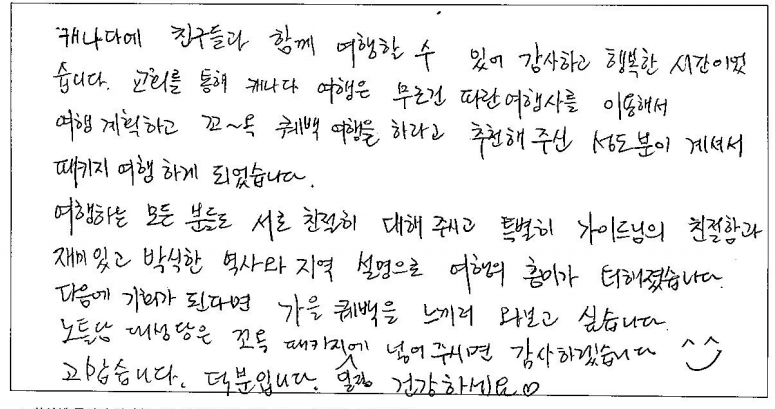 캐나다에 친구들과 함께 여행할 수 있어 감사하고 행복한 시간이었
습니다. 교회를 통해 캐나다 여행은 무조건 파란여행사를 이용해서
여행 계획하고 꼬~옥 퀘백 여행을 하라고 추천해 주신 성도분이 계셔서
패키지 여행 하게 되었습니다.
여행하는 모든 분들도 서로 친절히 대해 주시고 특별히 가이드님의 친절함과
재미있고 박식한 역사와 지역 설명으로 여행의 흥미가 더해졌습니다.
다음에 기회가 된다면 가을 퀘백을 느끼러 와보고 싶습니다.
노틀담 대성당은 꼬옥 패키지에 넣어 주시면 감사하겠습니다
고맙습니다. 덕분입니다. 건강하세요♡